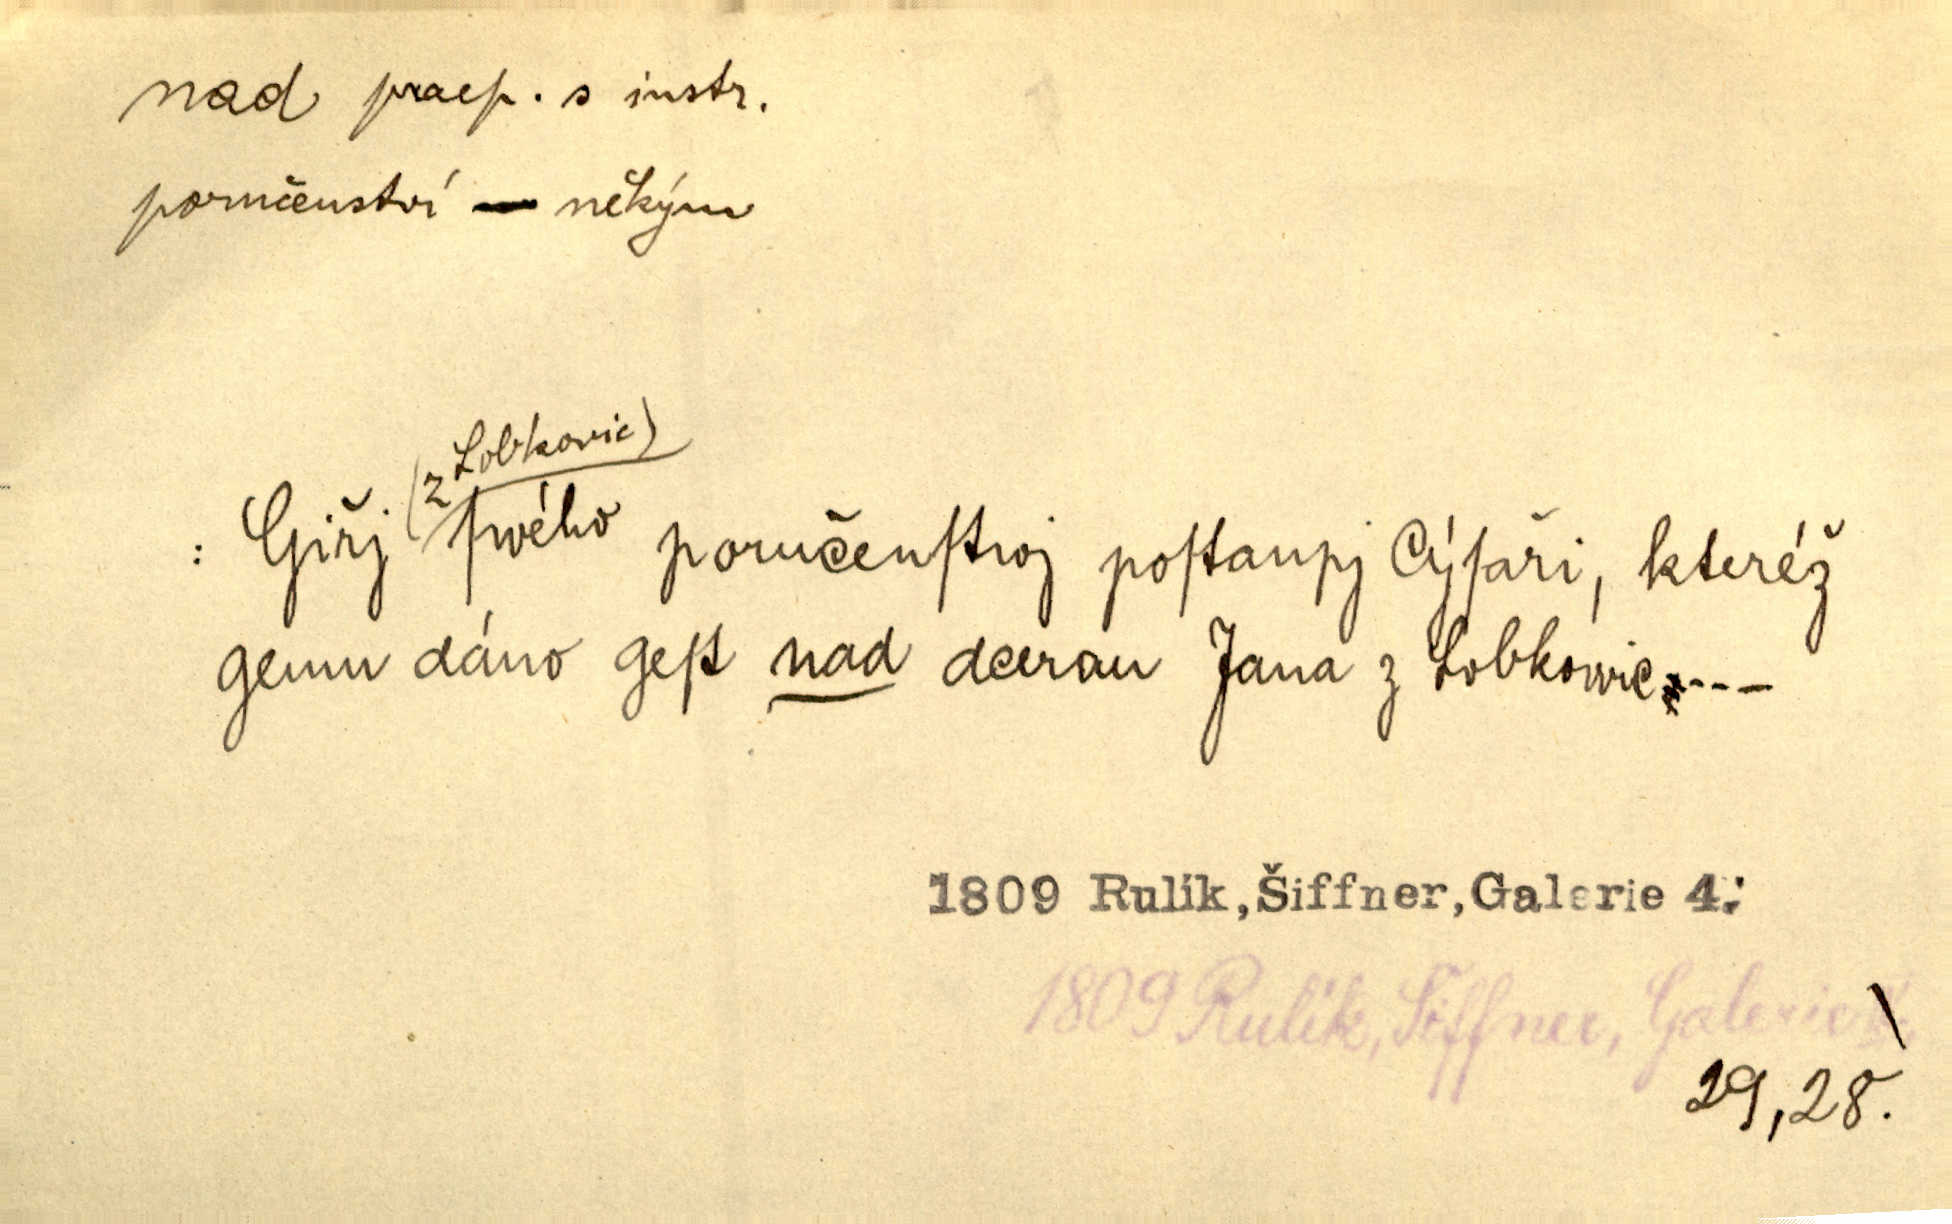 nad praep. s instr.
poručenství — někým
(z Lobkovic)
: Giřj ſwého poručenſtwj poſtaupj Cýſaři, kteréž
gemu dáno geſt nad dcerau Jana z Lobkowic ----
1809 Rulík, Šiffner, Galerie 4.
1809 Rulík, Šiffner, Galerie
29, 28.